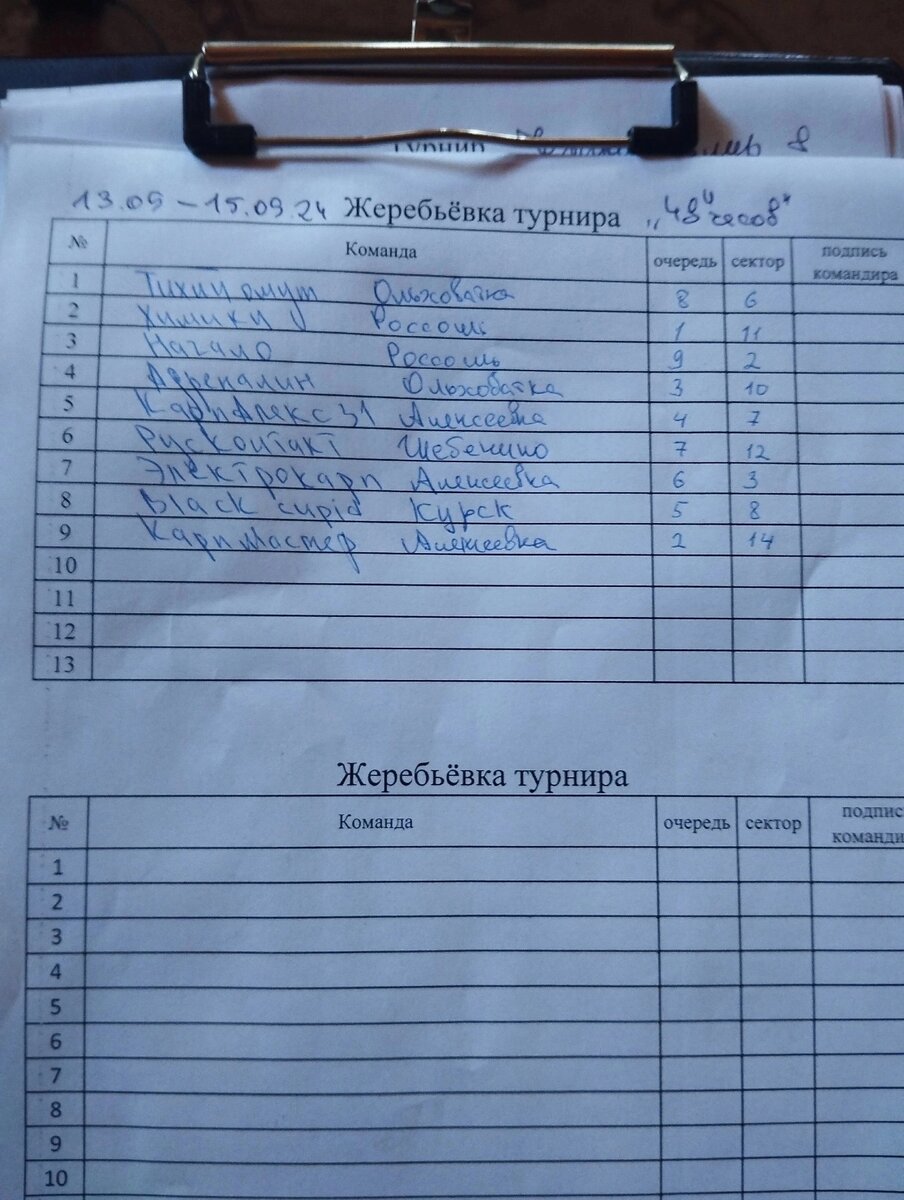 Турнир
13.09 – 15.09.24 Жеребьёвка турнира „48 часов"
№ Команда очередь сектор подпись командира
1 Тихий омут Ольховатка 8 6
2 Химики Россошь 1 11
3 Начало Россошь 9 2
4 Адреналин Ольховатка 3 10
5 КарпАлекс 31 Алексеевка 4 7
6 Шебекино 7 12
7 Электрокарп Алексеевка 6 3
8 Black cupid Курск 5 8
9 КарпМастер Алексеевка 2 14
10
11
12
13
Жеребьёвка турнира
№ Команда очередь сектор подпис команди
1
2
3
4
5
6
7
8
9
10